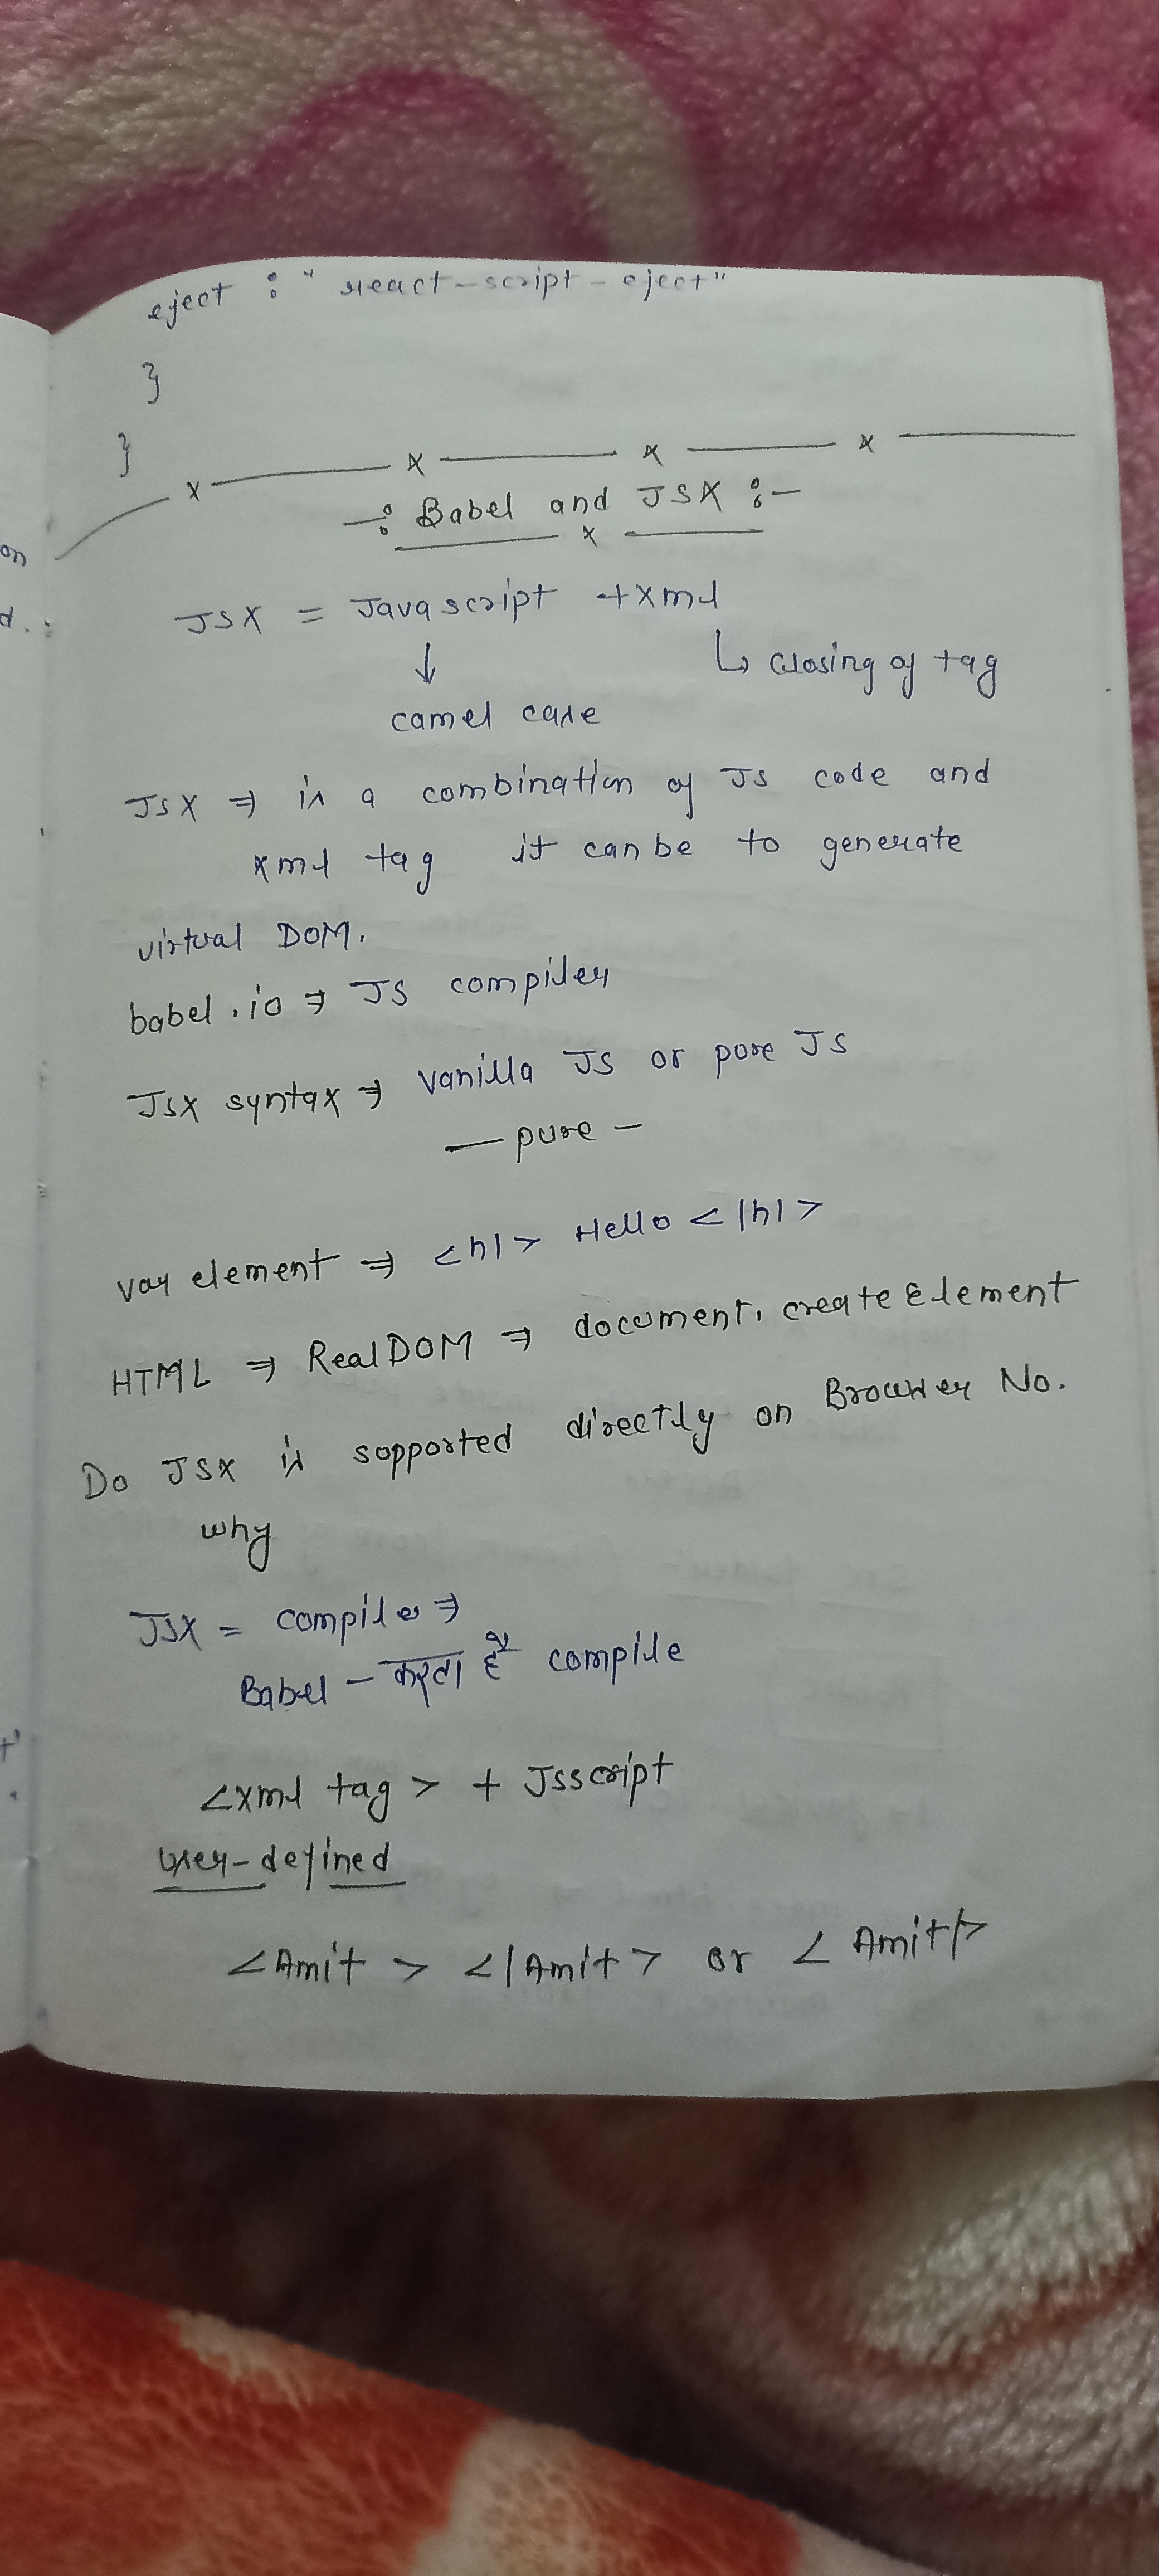 eject : "react-script-eject"
}
}
-: Babel and JSX :-
JSX = Javascript + xml
↳ closing of tag
↓
camel case
JSX ⇒ is a combination of JS code and
xml tag it can be to generate
virtual DOM.
babel.io ⇒ JS compiler
JSX syntax ⇒ vanilla JS or pure JS
— pure —
var element ⇒ <h1> Hello </h1>
HTML ⇒ Real DOM ⇒ document.createElement
Do JSX is supported directly on Browser No.
why
JSX = compile ⇒
Babel - करता है compile
<xml tag> + Jsscript
User-defined
<Amit> </Amit> or <Amit/>
on
d.